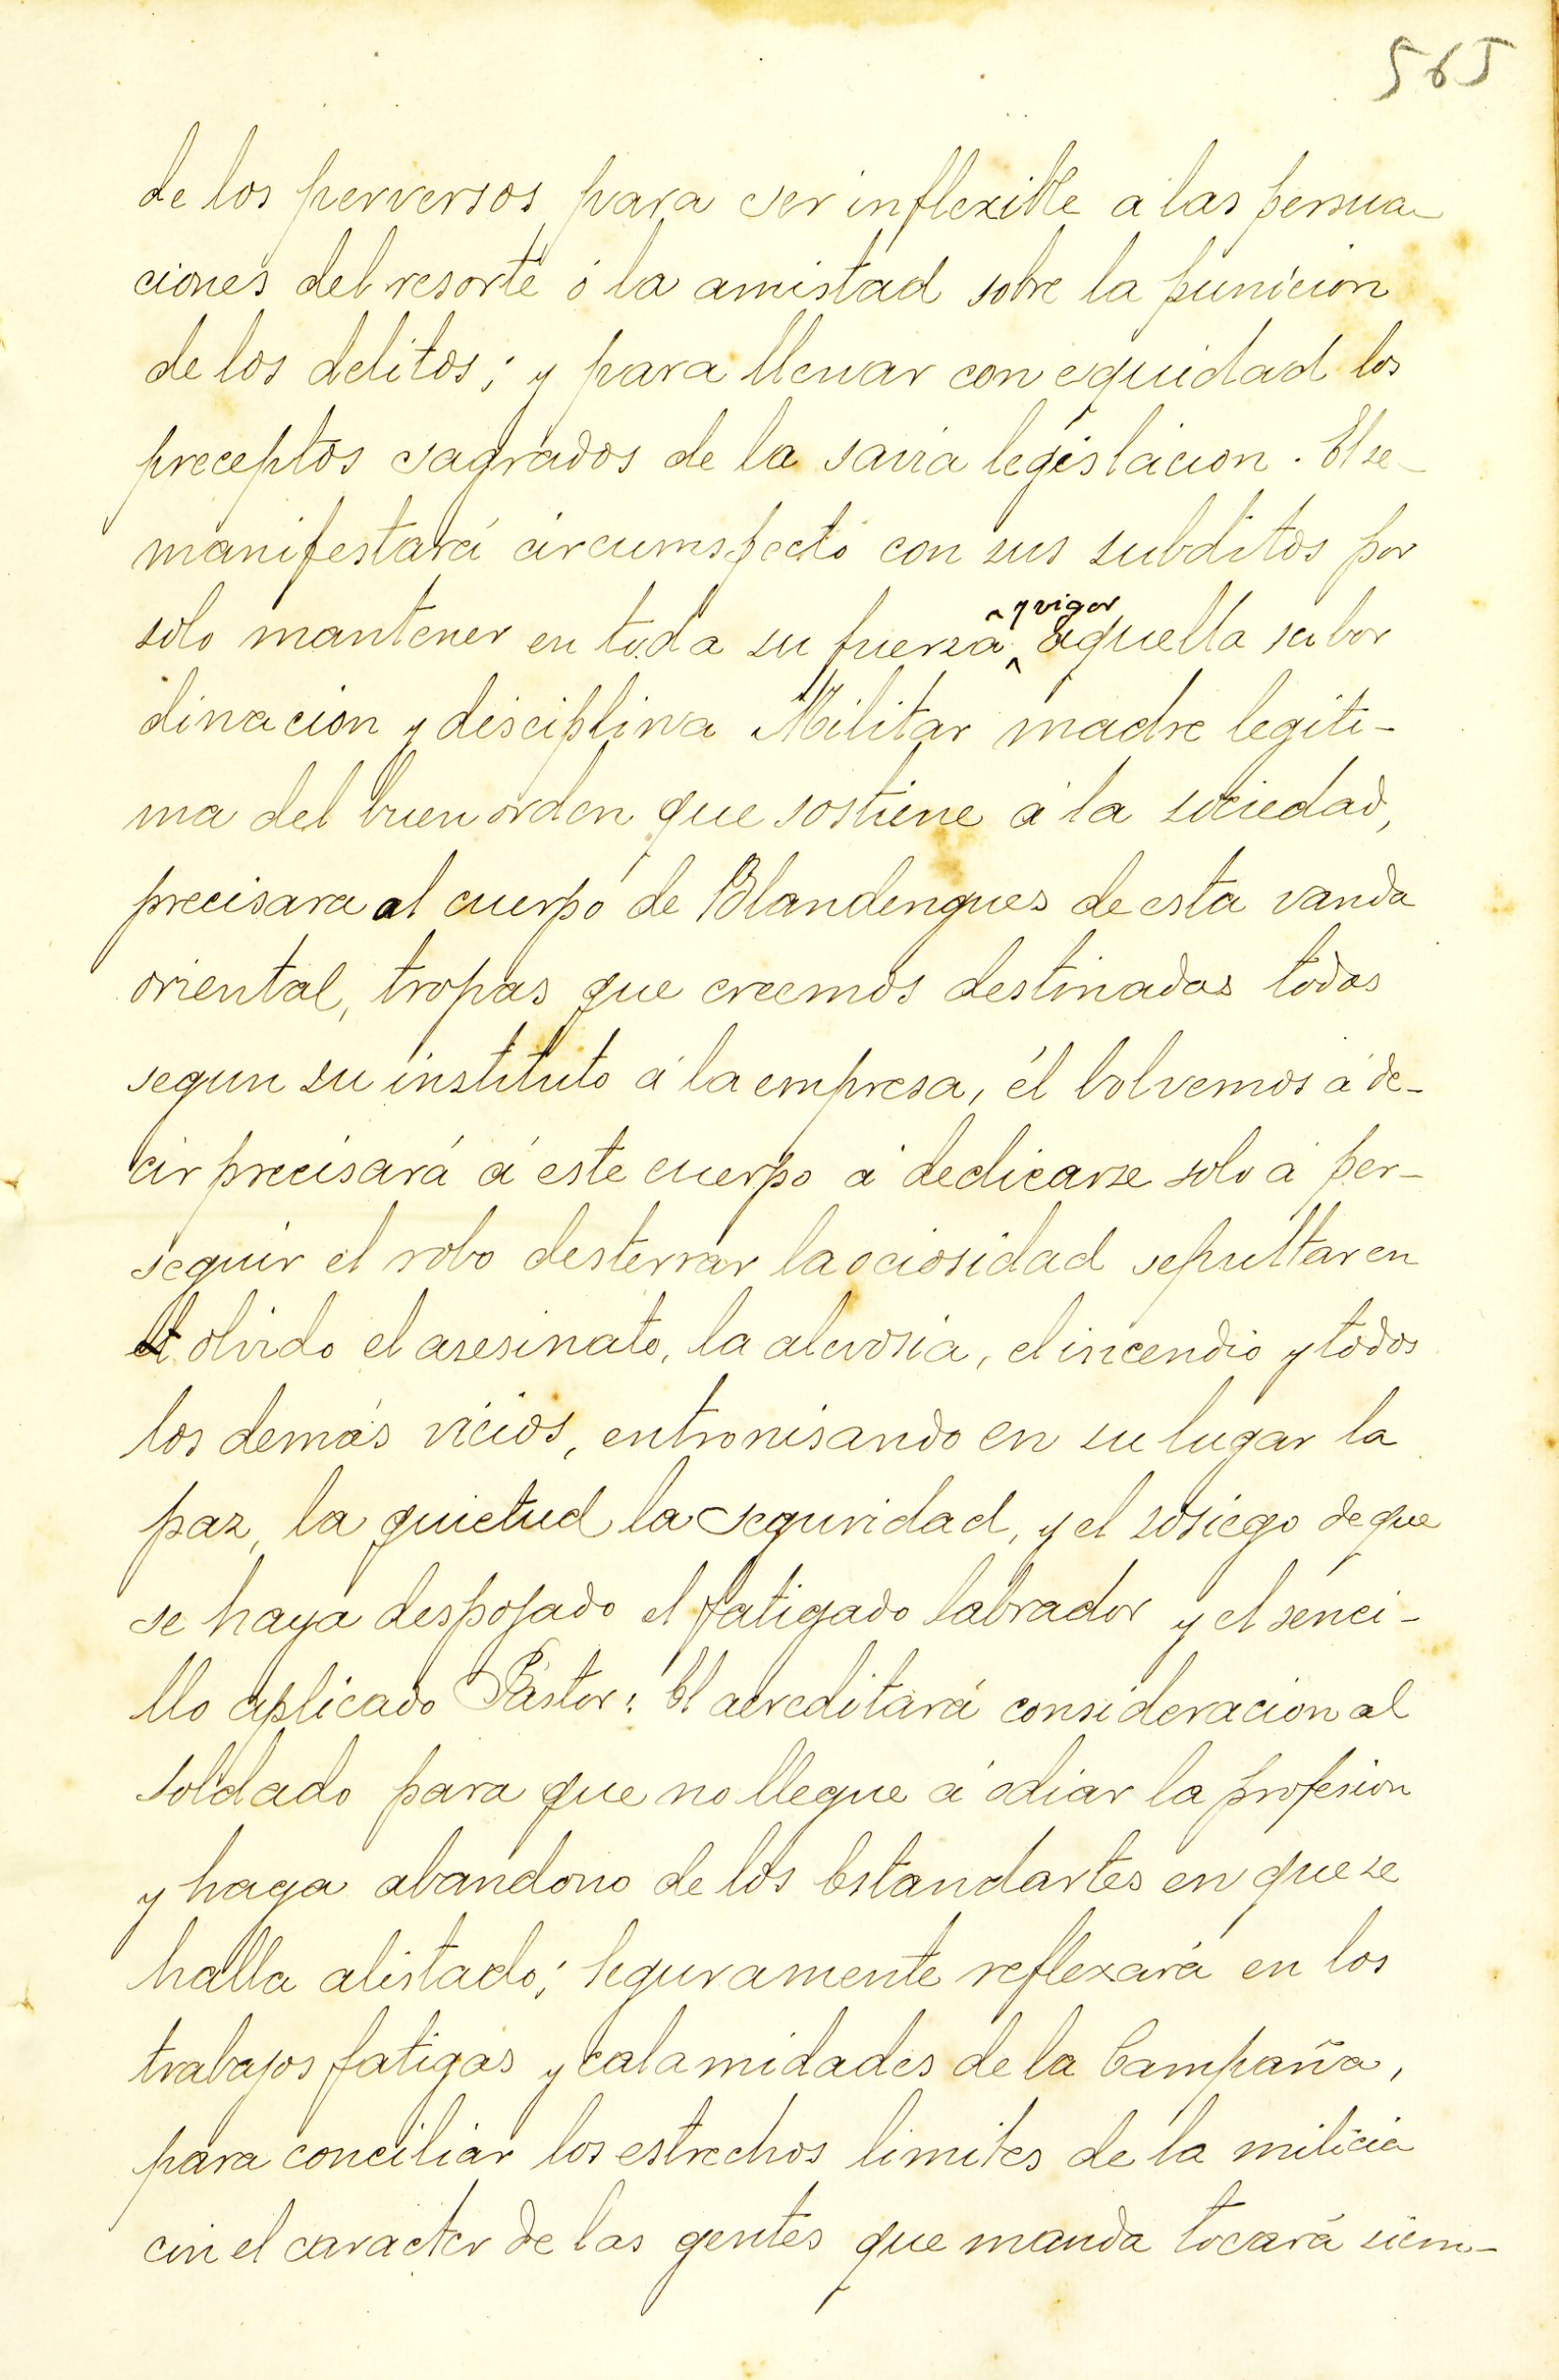 565
de los perversos para ser inflexible a las persua-
ciones del resorte ó la amistad sobre la punicion
de los delitos; y para llenar con equidad los
preceptos sagrados de la savia legislacion. El se-
manifestará circumspecto con sus subditos por
solo mantener en toda su fuerza y vigor aquella subor
dinacion y disciplina Militar madre legiti-
ma del buen orden que sostiene á la sociedad,
precisara al cuerpo de Blandengues de esta vanda
oriental, tropas que creemos destinadas todas
segun su instituto á la empresa, él bolvemos á de-
cir precisará á este cuerpo á dedicarse solo á per-
seguir el robo desterrar la ociosidad sepultar en
el olvido el asesinato, la alevosia, el incendio y todos
los demás vicios, entronisando en su lugar la
paz, la quietud la seguridad, y el sosiego de que
se haya despojado el fatigado labrador y el senci-
llo aplicado Pastor: El acreditará consideracion al
soldado para que no llegue á odiar la profesion
y haga abandono de los Estandartes en que se
halla alistado; Seguramente reflexará en los
trabajos fatigas y calamidades de la Campaña,
para conciliar los estrechos limites de la milicia
con el caracter de las gentes que manda tocará siem-